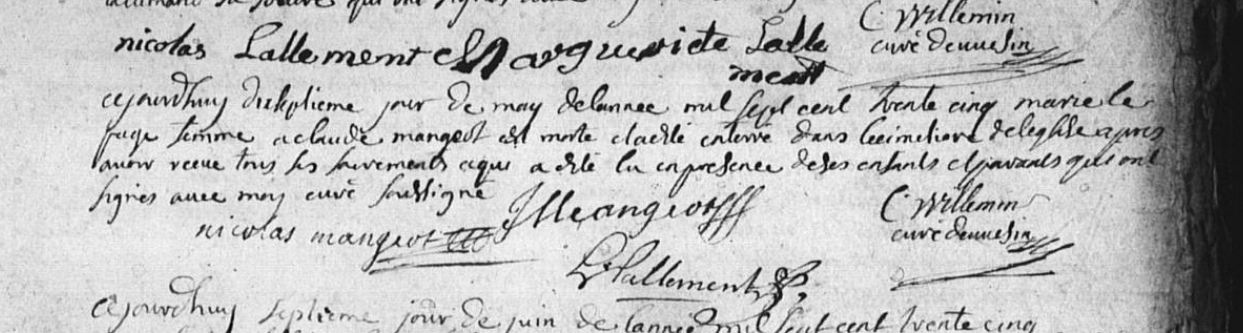 C Willemin
nicolas Lallement Marguerite Lalle
ment
curé
cejourdhuy dixseptieme jour de may delannee mil sept cent trente cinq marie le
page femme a claude mangeot est morte et a esté enterré dans lecimetiere deleglise apres
avoir receue tous ses sacrements a qui a esté en presence de ses enfants et parants qui ont
signes avec moy curé soussigné
J Mangeot
C Willemin
nicolas mangeot
curé
Lallement
cejourdhuy septieme jour de juin de lannee mil sept cent trente cinq